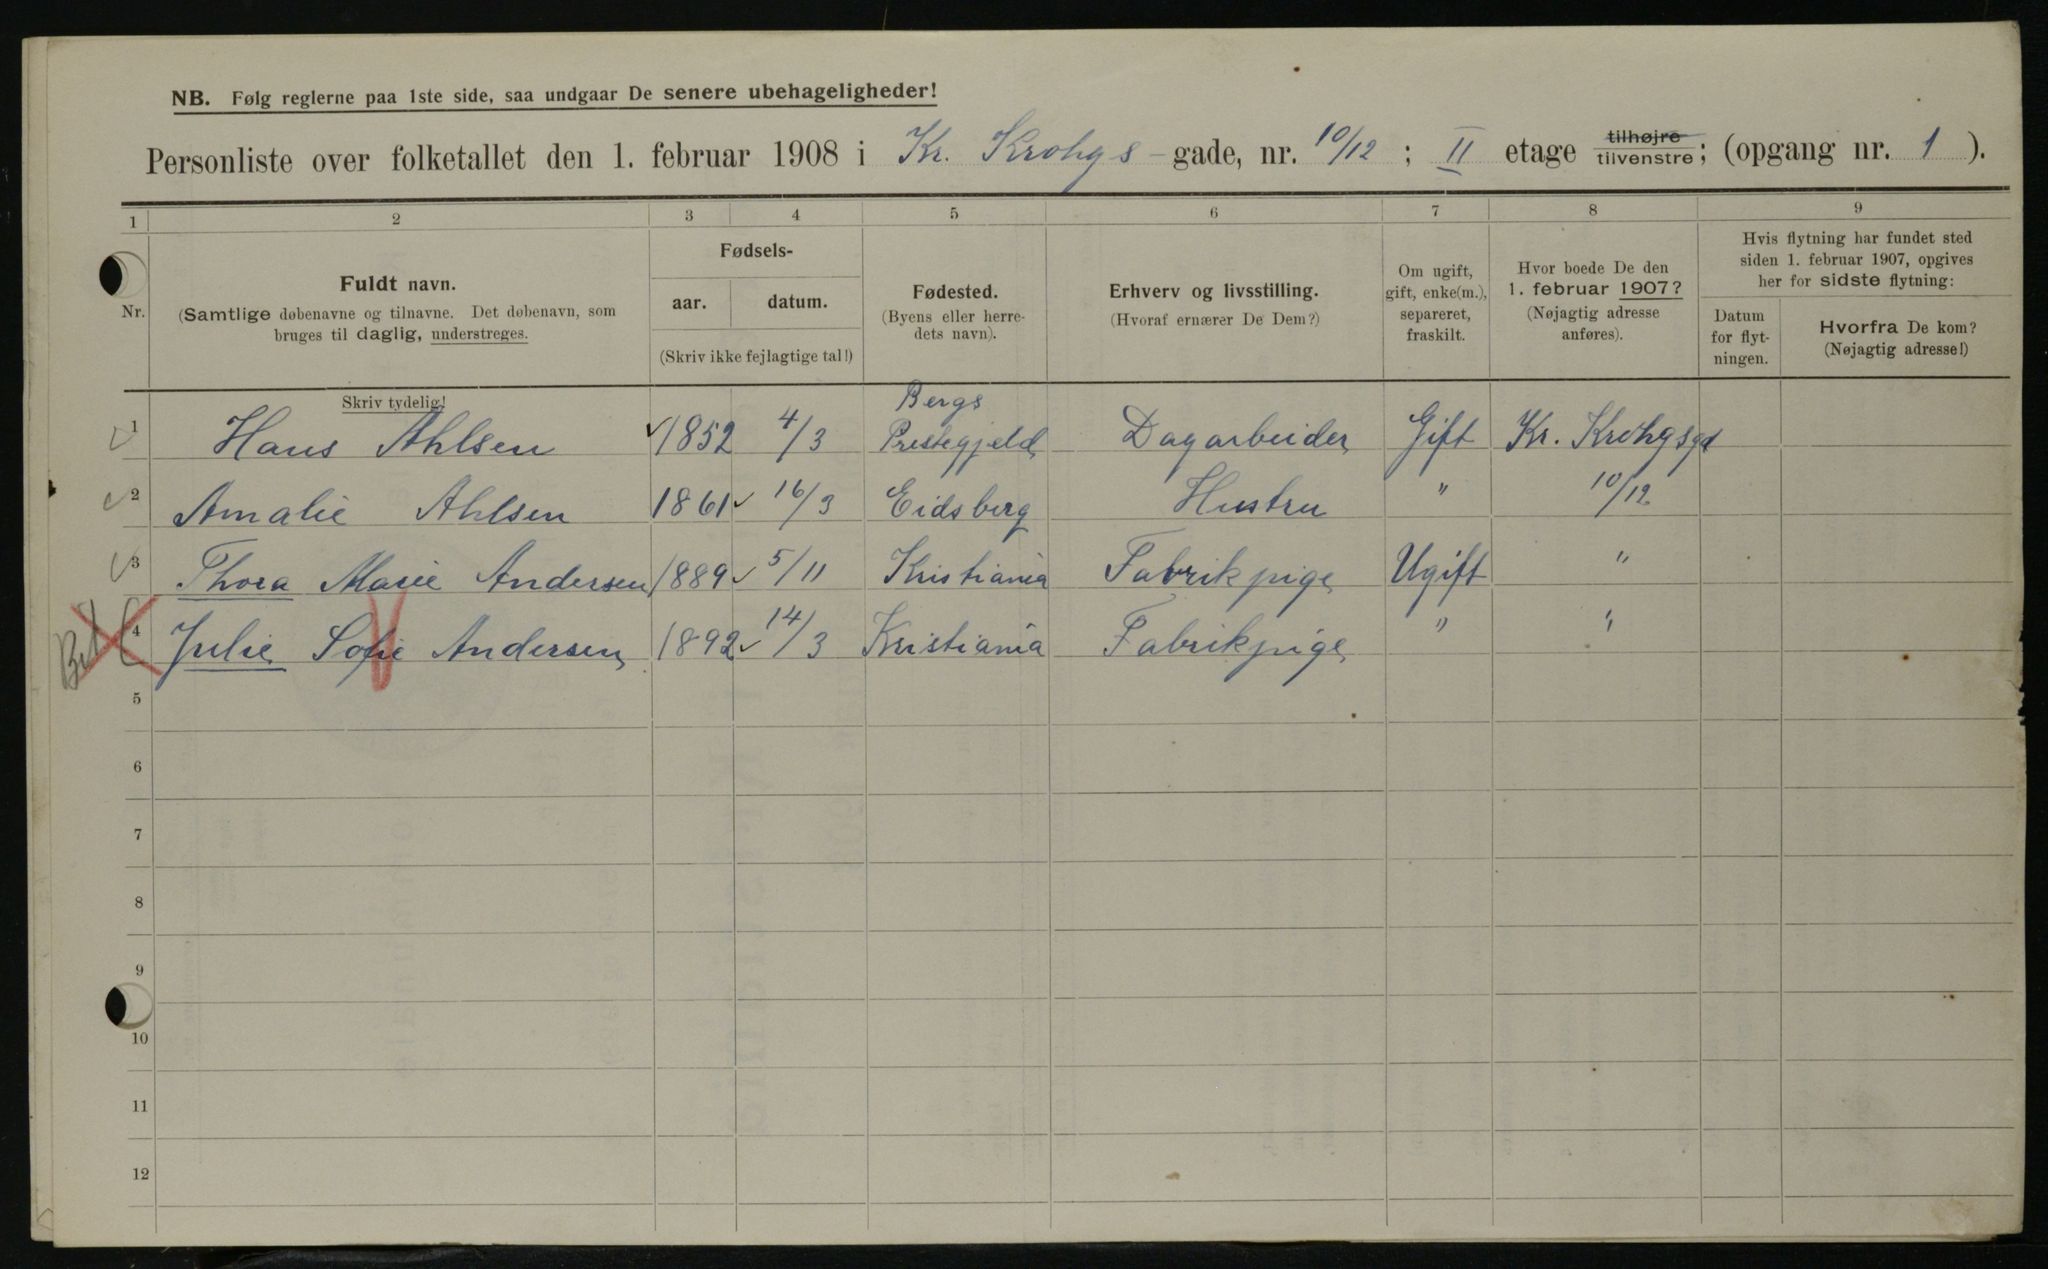 NB. Følg reglerne paa 1ste side, saa undgaar De senere ubehageligheder!
Personliste over folketallet den 1. februar 1908 i Kr. Krohgs - gade, nr. 10/12 ; II etage tilhøjre tilvenstre; (opgang nr. 1 ).
1 2 3 4 5 6 7 8 9
Nr.
Fuldt navn.
(Samtlige døbenavne og tilnavne. Det døbenavn, som
bruges til daglig, understreges.
Skriv tydelig!
Fødsels-
aar. datum.
(Skriv ikke fejlagtige tal!)
Fødested.
(Byens eller herre-
dets navn).
Erhverv og livsstilling.
(Hvoraf ernærer De Dem?)
Om ugift,
gift, enke(m.),
separeret,
fraskilt.
Hvor boede De den
1. februar 1907?
(Nøjagtig adresse
anføres).
Hvis flytning har fundet sted
siden 1. februar 1907, opgives
her for sidste flytning:
Datum
for flyt-
ningen.
Hvorfra De kom?
(Nøjagtig adresse!)
Bergs
1 Hans Ahlsen 1852 4/3 Prestegjeld Dagarbeider Gift Kr. Krohgsgd
2 Amalie Ahlsen 1861 16/3 Eidsberg Hustru " 10/12
3 Thora Marie Andersen 1889 5/11 Kristiania Fabrikpige Ugift "
4 Julie Sofie Andersen 1892 14/3 Kristiania Fabrikpige " "
5
6
7
8
9
10
11
12